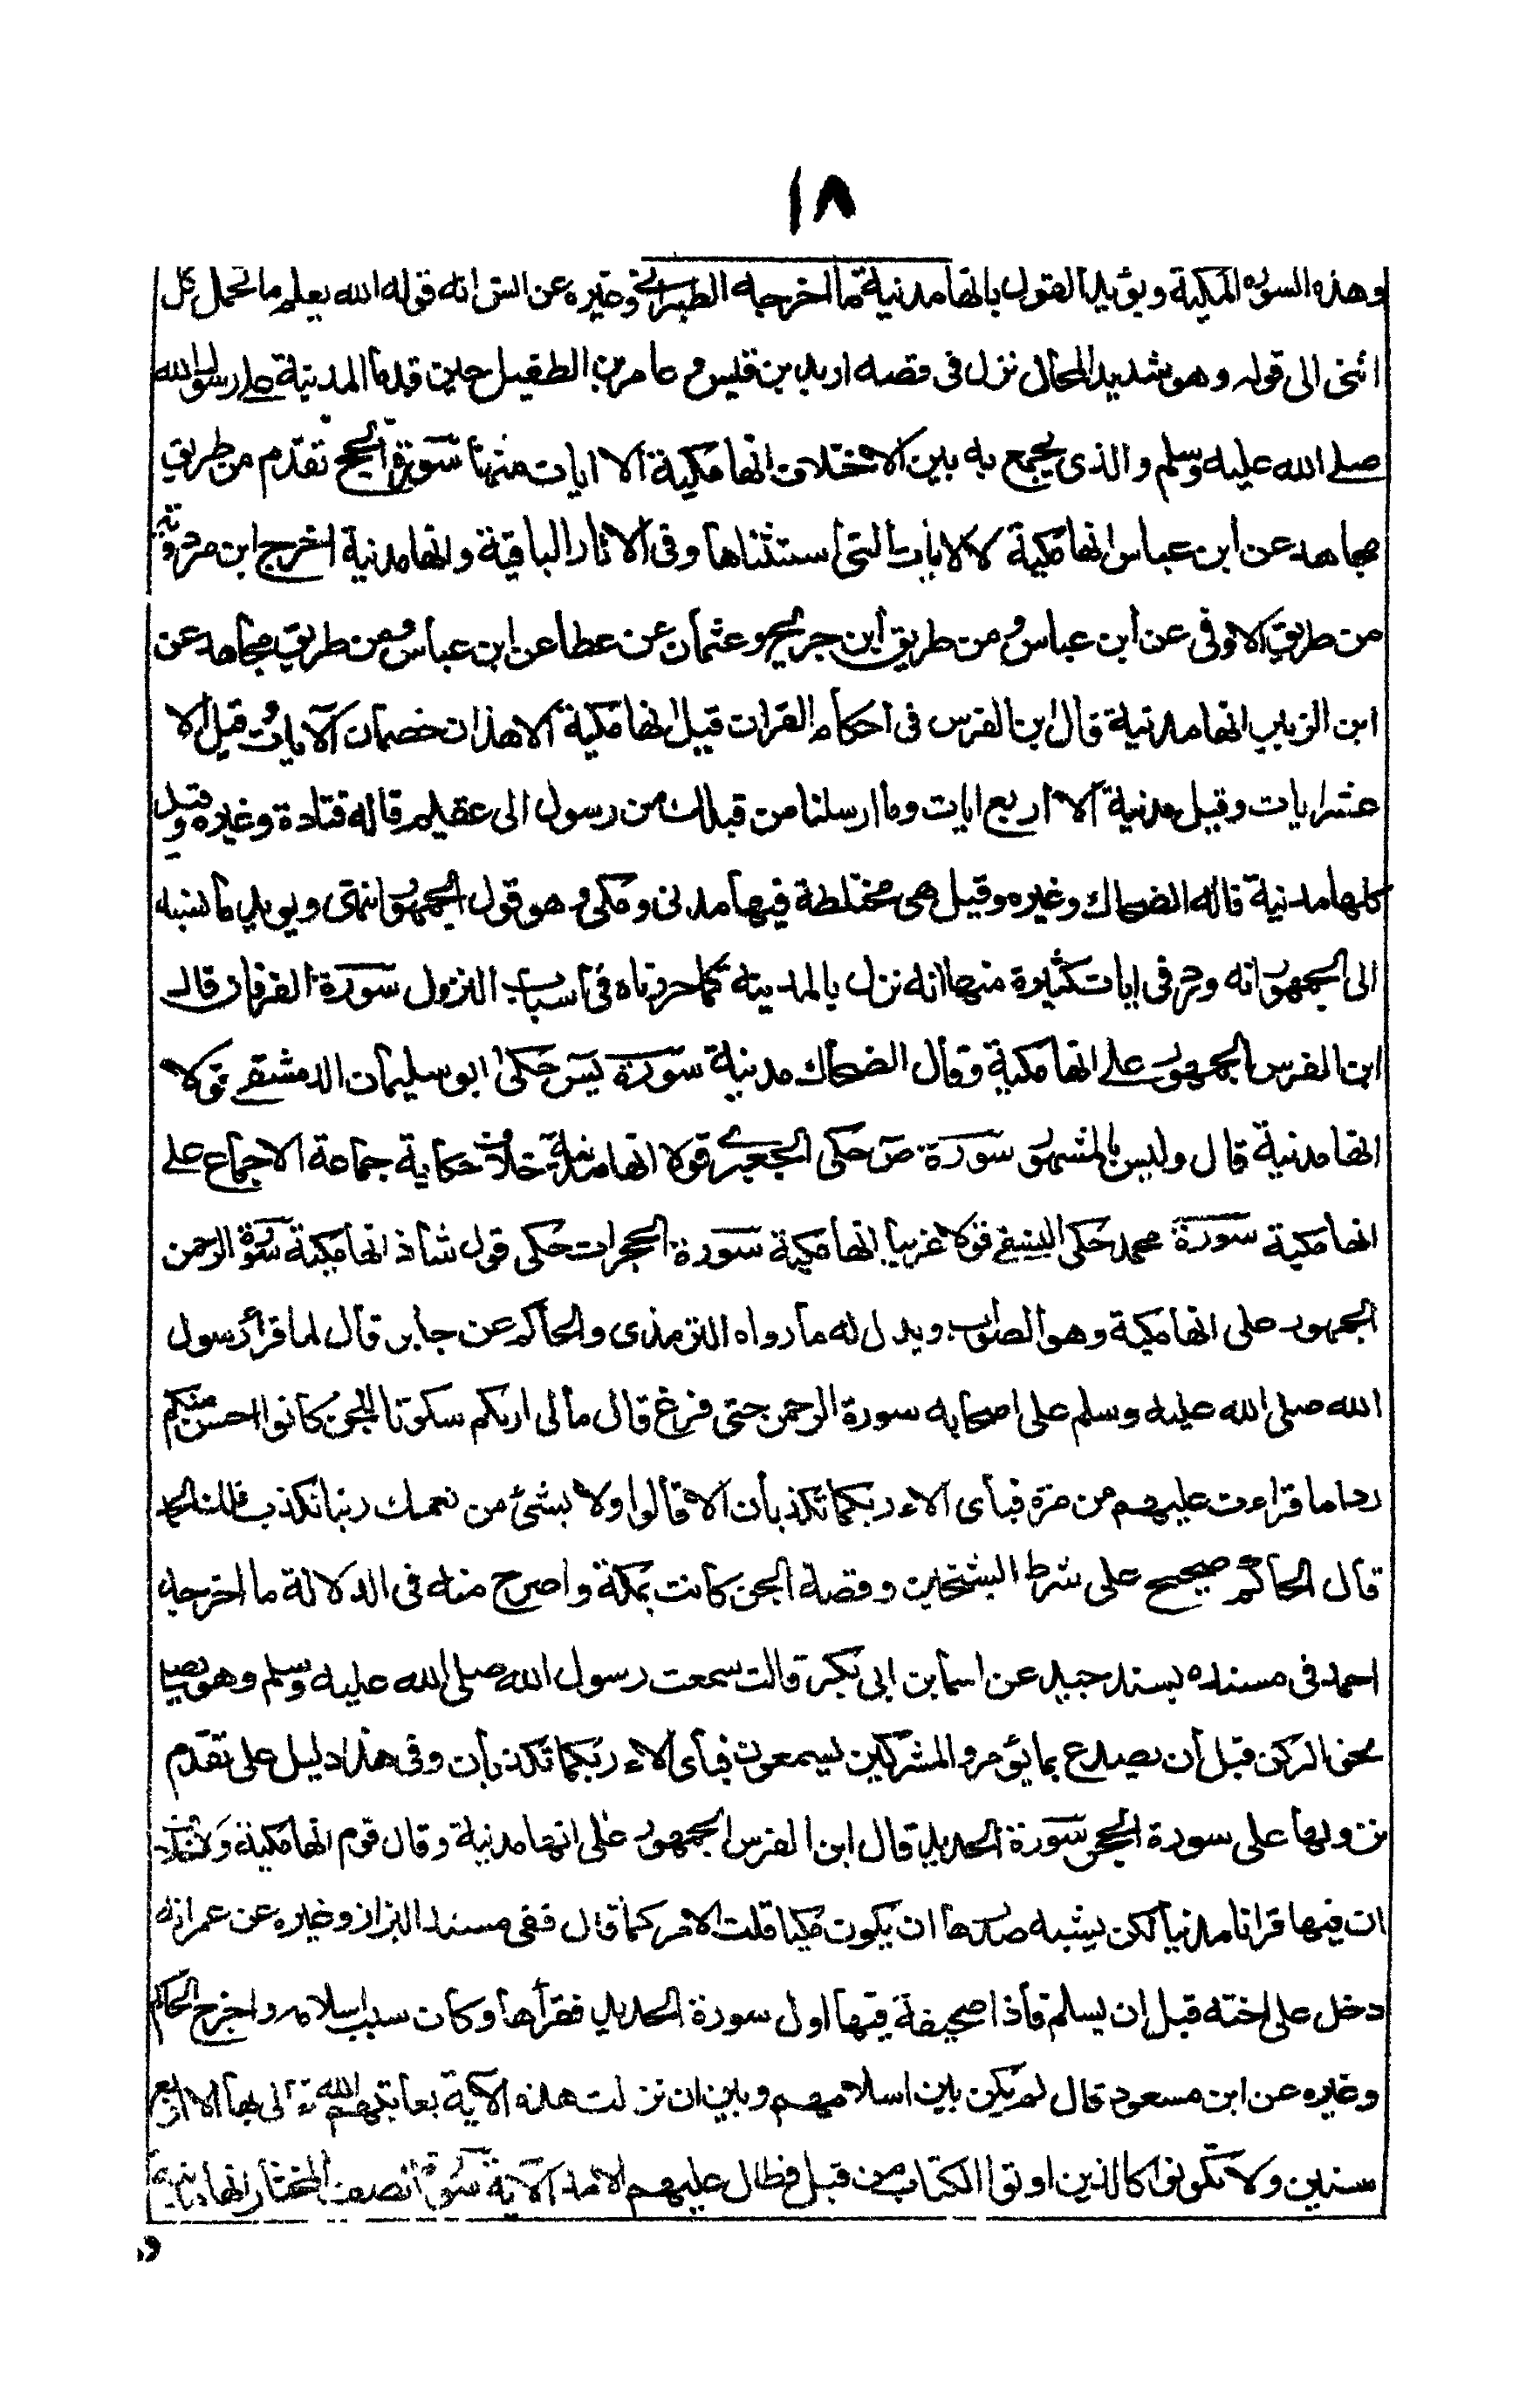 ١٨
وهذه السورة المكية ويؤيد القول بانها مدنية ما اخرجه الطبراني وغيره عن انس انه قوله الله يعلم ما تحمل كل
انثى الى قوله وهو شديد المحال نزل فى قصه اربد بن قيس و عامر بن الطفيل حين قدما المدينة على رسول الله
صلى الله عليه وسلم والذى يجمع به بين الاختلاف انها مكية الا ايات منها سورة الحج تقدم من طريق
مجاهد عن ابن عباس انها مكية لا الايات التى استثناها وفى الاثار الباقية وانها مدنية اخرج ابن مردويه
من طريق الاوفى عن ابن عباس و من طريق ابن جريج وعثمان عن عطا عن ابن عباس ومن طريق مجاهد عن
ابن الزبير انها مدنية قال ابن الفرس فى احكام القران قيل انها مكية الا هذان خصمان الآيات و قيل الا
عشر ايات وقيل مدنية الا اربع ايات وما ارسلنا من قبلك من رسول الى عقيم قاله قتادة وغيره وقيل
كلها مدنية قاله الضحاك وغيره وقيل هى مختلطة فيها مدنى ومكى و هو قول الجمهور انتهى ويويد ما نسبه
الى الجمهور انه ورد فى ايات كثيرة منها انه نزل بالمدينه كما حررناه فى اسباب النزول سورة الفرقان قال
ابن الفرس الجمهور على انها مكية وقال الضحاك مدنية سورة يس حكى ابو سليمان الدمشقى قولا
انها مدنية قال وليس بالمشهور سورة ص حكى الجعبرى قولا انها مدنية خلاف حكاية جماعة الاجماع على
انها مكية سورة محمد حكى النسفى قولا غريبا انها مكية سورة الحجرات حكى قول شاذ انها مكية سورة الرحمن
الجمهور على انها مكية وهو الصواب ويدل له ما رواه الترمذى والحاكم عن جابر قال لما قرأ رسول
الله صلى الله عليه وسلم على اصحابه سورة الرحمن حتى فرغ قال مالى اراكم سكوتا للجن كانوا احسن منكم
ردا ما قراءت عليهم من مرة فباى الاء ربكما تكذبان الا قالوا ولا بشئ من نعمك ربنا نكذب فلك الحمد
قال الحاكم صحيح على شرط الشيخين وقصة الجن كانت بمكة واصرح منه فى الدلالة ما اخرجه
احمد فى مسنده بسند جيد عن اسما بن ابى بكر قالت سمعت رسول الله صلى الله عليه وسلم وهو يصلى
نحو الركن قبل ان يصدع بما يؤمر والمشركين يسمعون فباى الاء ربكما تكذبان وفى هذا دليل على تقدم
نزولها على سورة الحجر سورة الحديد قال ابن الفرس الجمهور على انها مدنية وقال قوم انها مكية ولا خلاف
ان فيها قرانا مدنيا لكن يشبه صدرها ان يكون مكيا قلت الامر كما قال ففى مسند البزاز وغيره عن عمر انه
دخل على اخته قبل ان يسلم فاذا صحيفة فيها اول سورة الحديد فقرأها وكان سبب اسلامه واخرج الحاكم
وغيره عن ابن مسعود قال لم يكن بين اسلامهم وبين ان نزلت هذه الآية يعاتبهم الله تعالى بها الا اربع
سنين ولا تكونوا كالذين اوتوا الكتاب من قبل فطال عليهم الامد الآية سورة الصف المختار انها مدنية